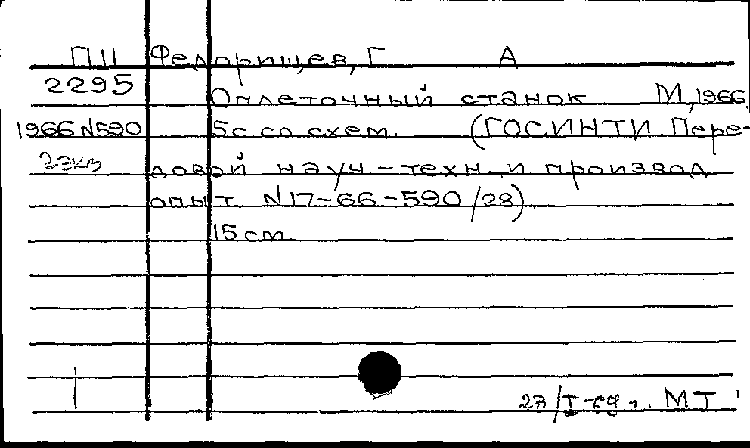 ПЦ Федорищев, Г А
2295
Оплеточный станок М, 1966,
1966 N590 5с со схем. (ГОСИНТИ Пере-
2экз довой науч-техн. и производ
опыт. N17-66-590/28)
15 см.
МТ